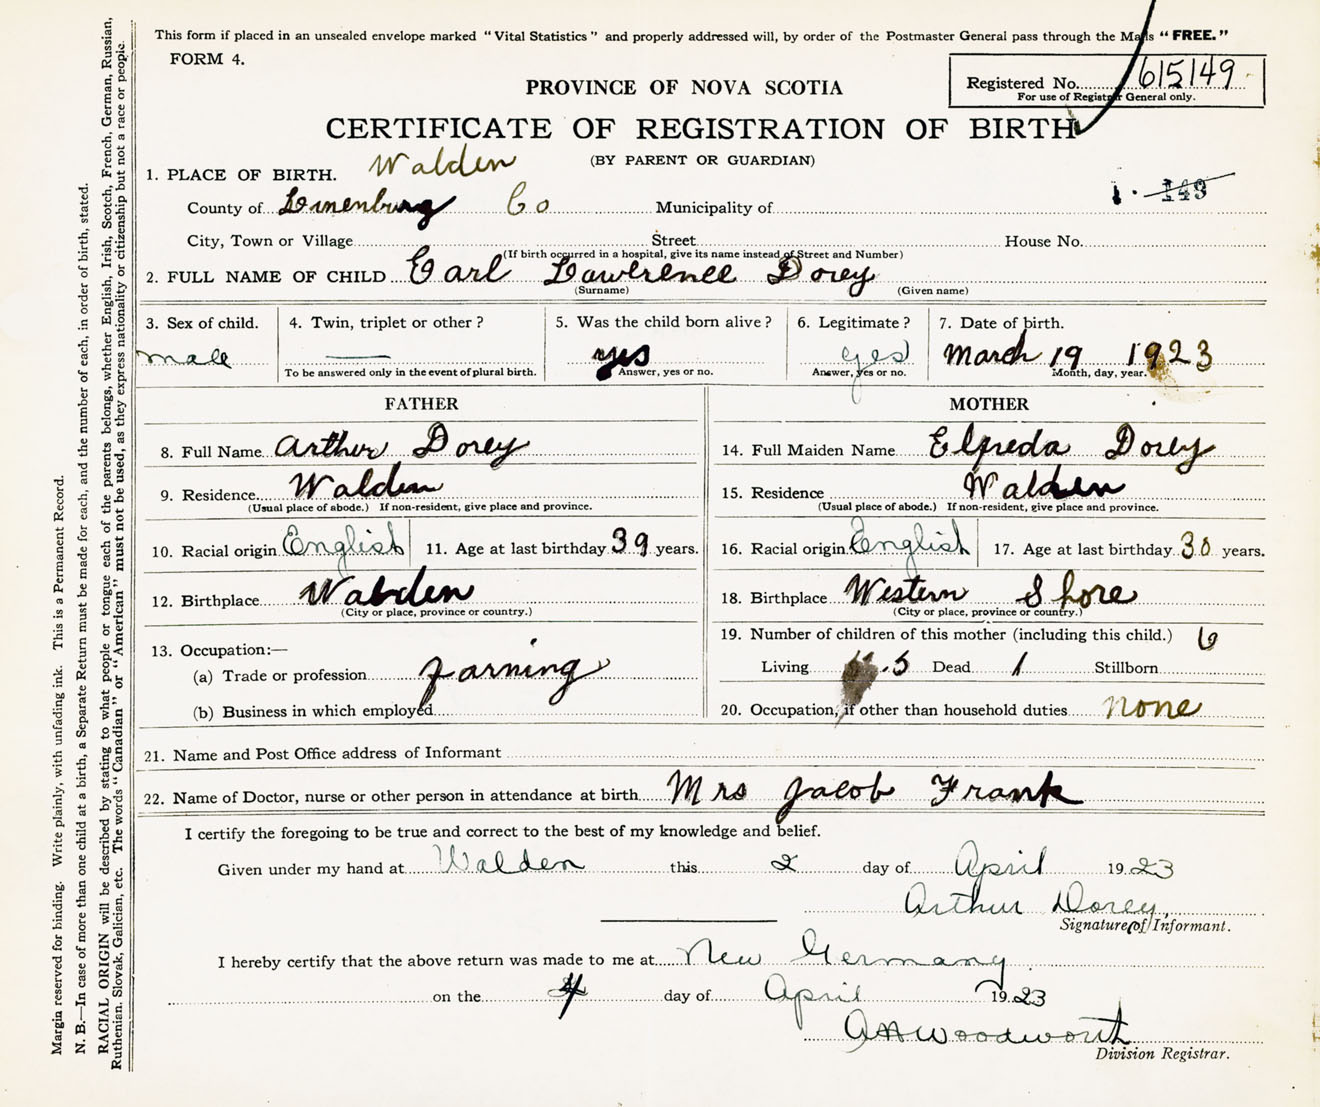 This form if placed in an unsealed envelope marked "Vital Statistics" and properly addressed will, by order of the Postmaster General pass through the Mails "FREE."
FORM 4.
Registered No. 615149
For use of Registrar General only.
PROVINCE OF NOVA SCOTIA
CERTIFICATE OF REGISTRATION OF BIRTH
(BY PARENT OR GUARDIAN)
1. PLACE OF BIRTH. Walden
1. 143
County of Lunenburg Co Municipality of
City, Town or Village Street House No.
(If birth occurred in a hospital, give its name instead of Street and Number)
2. FULL NAME OF CHILD Earl Lawerence Dorey
(Surname) (Given name)
3. Sex of child. 4. Twin, triplet or other? 5. Was the child born alive? 6. Legitimate? 7. Date of birth.
male yes yes March 19 1923
To be answered only in the event of plural birth. Answer, yes or no. Answer, yes or no. Month, day, year.
FATHER
8. Full Name Arthur Dorey
9. Residence Walden
(Usual place of abode.) If non-resident, give place and province.
10. Racial origin English 11. Age at last birthday 39 years.
12. Birthplace Walden
(City or place, province or country.)
13. Occupation:—
(a) Trade or profession farming
(b) Business in which employed
MOTHER
14. Full Maiden Name Elfreda Dorey
15. Residence Walden
(Usual place of abode.) If non-resident, give place and province.
16. Racial origin English 17. Age at last birthday 30 years.
18. Birthplace Western Shore
(City or place, province or country.)
19. Number of children of this mother (including this child.) 6
Living 5 Dead 1 Stillborn
20. Occupation, if other than household duties none
21. Name and Post Office address of Informant
22. Name of Doctor, nurse or other person in attendance at birth Mrs Jacob Frank
I certify the foregoing to be true and correct to the best of my knowledge and belief.
Given under my hand at Walden this 2 day of April 1923
Arthur Dorey
Signature of Informant.
I hereby certify that the above return was made to me at New Germany
on the 4 day of April 1923
AA Woodworth
Division Registrar.
Margin reserved for binding. Write plainly, with unfading ink. This is a Permanent Record.
N. B.—In case of more than one child at a birth, a Separate Return must be made for each, and the number of each, in order of birth, stated.
RACIAL ORIGIN will be described by stating to what people or tongue each of the parents belongs, whether English, Irish, Scotch, French, German, Russian,
Ruthenian, Slovak, Galician, etc. The words "Canadian" or "American" must not be used, as they express nationality or citizenship but not a race or people.